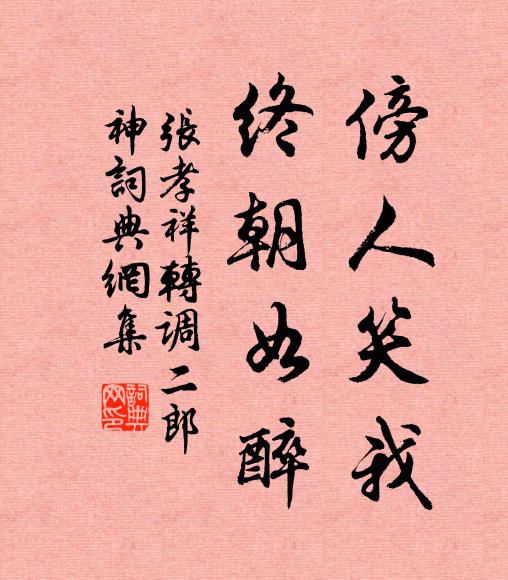 傍人笑我
終朝如醉
張孝祥轉调二郎
神詞典網集
詞典
网印